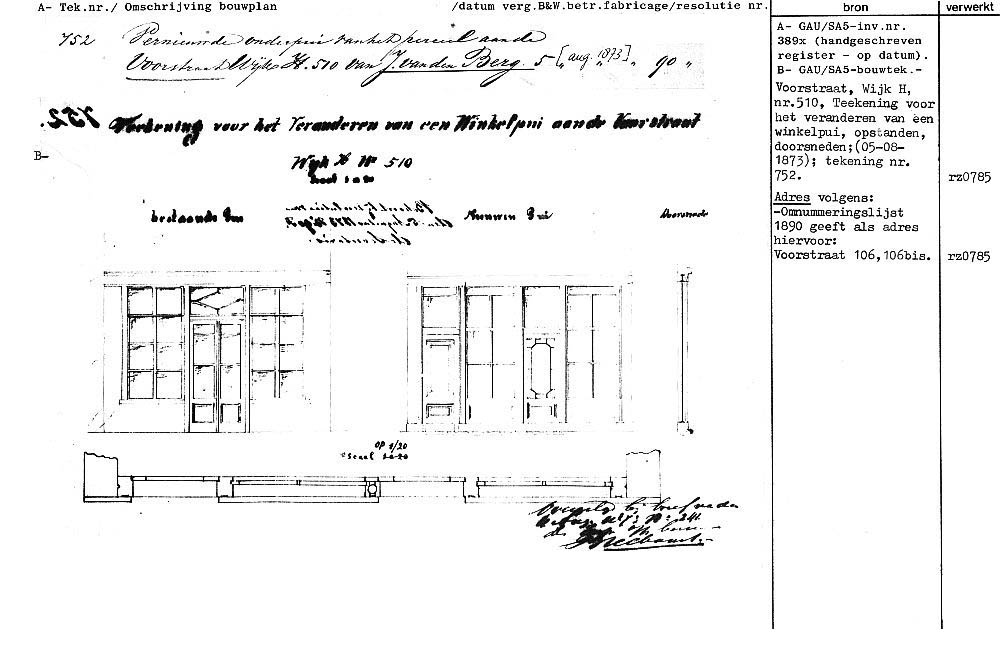 A- Tek.nr./ Omschrijving bouwplan /datum verg.B&W.betr.fabricage/resolutie nr.
bron
verwerkt
752 Vernieuwde onderpui van het perceel aan de
Voorstraat Wijk H. 510 van J. van den Berg. 5 [„ aug. „ 1873] „ 90 „
752. Teekening voor het Veranderen van een Winkelpui aan de Voorstraat
B-
Wijk H No 510
Schaal 1 a 20
bestaande Pui
Nieuwe Pui
Doorsnede
OP 1/20
Schaal 1 a 20
A- GAU/SA5-inv.nr.
389x (handgeschreven
register - op datum).
B- GAU/SA5-bouwtek.-
Voorstraat, Wijk H,
nr.510, Teekening voor
het veranderen van een
winkelpui, opstanden,
doorsneden;(05-08-
1873); tekening nr.
752.
rz0785
Adres volgens:
-Omnummeringslijst
1890 geeft als adres
hiervoor:
Voorstraat 106,106bis.
rz0785